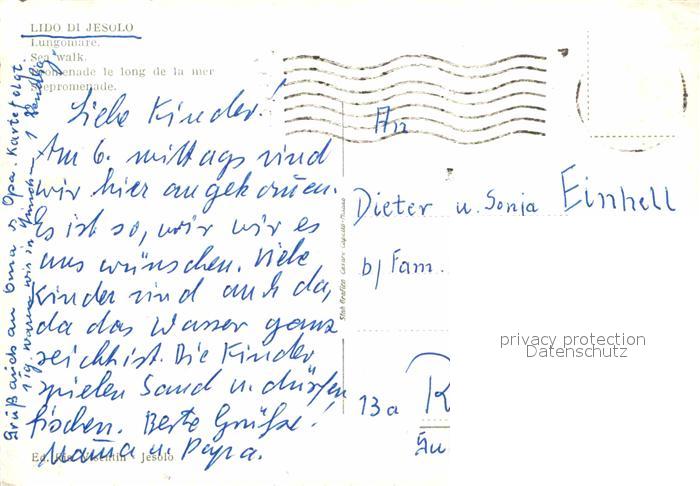 LIDO DI JESOLO
Lungomare.
Sea walk.
Promenade le long de la mer
Seepromenade.
Liebe Kinder!
Am 6. mittags sind
wir hier angekom̅en.
Es ist so, wie wir es
uns wünschen. Viele
Kinder sind auch da,
da das Wasser ganz
seicht ist. Die Kinder
spielen Sand u. dürfen
fischen. Beste Grüße!
Mam̅a u. Papa.
Grüß auch an Oma u. Opa. Karte folgt.
1 Tg. waren wir in München
Ed. Visentin - Jesolo
Stab Grafico Cesare Capello-Milano
An
Dieter u. Sonja Einhell
b/ Fam.
13a K
privacy protection
Datenschutz